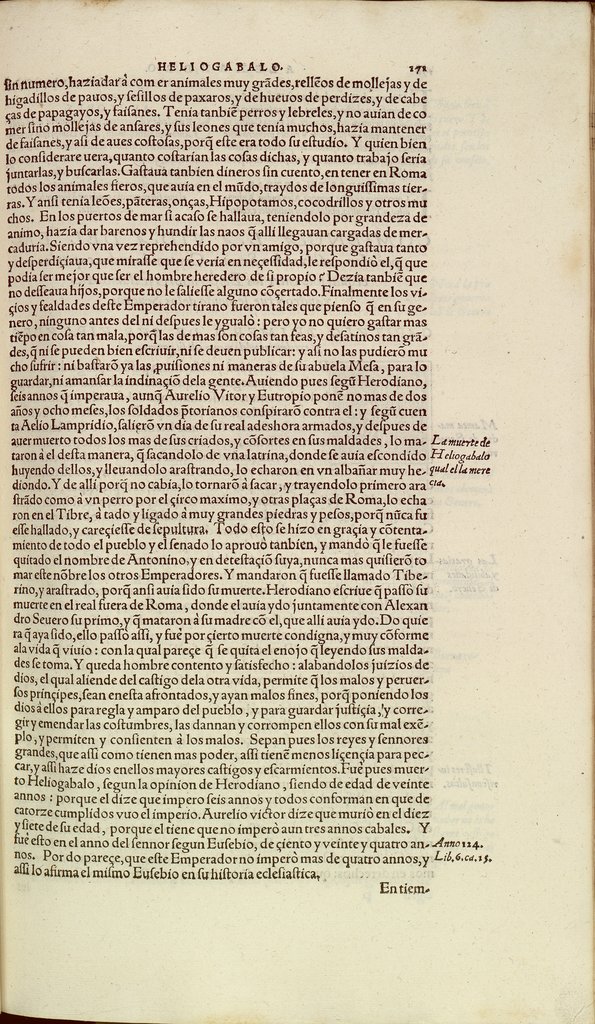 HELIOGABALO. 171
sin numero, hazia dar à com er animales muy grãdes, rellẽos de mollejas y de
higadillos de pauos, y sesillos de paxaros, y de hueuos de perdizes, y de cabe
ças de papagayos, y faisanes. Tenia tanbiẽ perros y lebreles, y no auian de co
mer sino mollejas de ansares, y sus leones que tenia muchos, hazia mantener
de faisanes, y asi de aues costosas, porq̃ este era todo su estudio. Y quien bien
lo considerare uera, quanto costarian las cosas dichas, y quanto trabajo seria
juntarlas, y buscarlas. Gastaua tanbien dineros sin cuento, en tener en Roma
todos los animales fieros, que auia en el mũdo, traydos de longuissimas tier-
ras. Y ansi tenia leões, pãteras, onças, Hipopotamos, cocodrillos y otros mu
chos. En los puertos de mar si acaso se hallaua, teniendolo por grandeza de
animo, hazia dar barenos y hundir las naos q̃ alli llegauan cargadas de mer-
caduria. Siendo vna vez reprehendido por vn amigo, porque gastaua tanto
y desperdiçiaua, que mirasse que se veria en neçessidad, le respondiò el, q̃ que
podia ser mejor que ser el hombre heredero de si propio? Dezia tanbiẽ que
no desseaua hijos, porque no le saliesse alguno cõçertado. Finalmente los vi-
çios y fealdades deste Emperador tirano fueron tales que pienso q̃ en su ge-
nero, ninguno antes del ni despues le ygualò: pero yo no quiero gastar mas
tiẽpo en cosa tan mala, porq̃ las de mas son cosas tan feas, y desatinos tan grã-
des, q̃ ni se pueden bien escriuir, ni se deuen publicar: y asi no las pudierõ mu
cho sufrir: ni bastarõ ya las prouisiones ni maneras de su abuela Mesa, para lo
guardar, ni amansar la indinaçiõ dela gente. Auiendo pues segũ Herodiano,
seis annos q̃ imperaua, aunq̃ Aurelio Vitor y Eutropio ponẽ no mas de dos
años y ocho meses, los soldados pretorianos conspirarõ contra el: y segũ cuen
ta Aelio Lampridio, salierõ vn dia de su real adeshora armados, y despues de
auer muerto todos los mas de sus criados, y cõsortes en sus maldades, lo ma-
taron à el desta manera, q̃ sacandolo de vna latrina, donde se auia escondido
huyendo dellos, y lleuandolo arastrando, lo echaron en vn albañar muy he-
diondo. Y de alli porq̃ no cabia, lo tornarõ à sacar, y trayendolo primero ara
strãdo como à vn perro por el çirco maximo, y otras plaças de Roma, lo echa
ron en el Tibre, à tado y ligado à muy grandes piedras y pesos, porq̃ nũca fu
esse hallado, y careçiesse de sepultura. Todo esto se hizo en graçia y cõtenta-
miento de todo el pueblo y el senado lo aprouò tanbien, y mandò q̃ le fuesse
quitado el nombre de Antonino, y en detestaçiõ suya, nunca mas quisierõ to
mar este nõbre los otros Emperadores. Y mandaron q̃ fuesse llamado Tibe-
rino, y arastrado, porq̃ ansi auia sido su muerte. Herodiano escriue q̃ passò su
muerte en el real fuera de Roma, donde el auia ydo juntamente con Alexan
dro Seuero su primo, y q̃ mataron à su madre cõ el, que alli auia ydo. Do quie
ra q̃ aya sido, ello passò assi, y fue por çierto muerte condigna, y muy cõforme
ala vida q̃ viuio: con la qual pareçe q̃ se quita el enojo q̃ leyendo sus malda-
des se toma. Y queda hombre contento y satisfecho: alabandolos juizios de
dios, el qual aliende del castigo dela otra vida, permite q̃ los malos y peruer-
sos prinçipes, sean enesta afrontados, y ayan malos fines, porq̃ poniendo los
dios à ellos para regla y amparo del pueblo, y para guardar justiçia, y corre-
gir y emendar las costumbres, las dannan y corrompen ellos con su mal exẽ-
plo, y permiten y consienten à los malos. Sepan pues los reyes y sennores
grandes, que assi como tienen mas poder, assi tienẽ menos liçençia para pec-
car, y assi haze dios enellos mayores castigos y escarmientos. Fue pues muer-
to Heliogabalo, segun la opinion de Herodiano, siendo de edad de veinte
annos: porque el dize que impero seis annos y todos conforman en que de
catorze cumplidos vuo el imperio. Aurelio victor dize que muriò en el diez
y siete de su edad, porque el tiene que no imperò aun tres annos cabales. Y
fue esto en el anno del sennor segun Eusebio, de çiento y veinte y quatro an-
nos. Por do pareçe, que este Emperador no imperò mas de quatro annos, y
assi lo afirma el mismo Eusebio en su historia eclesiastica.
En tiem-
La muerte de
Heliogabalo
qual el la mere
cia.
Anno 124.
Lib. 6. ca. 15.